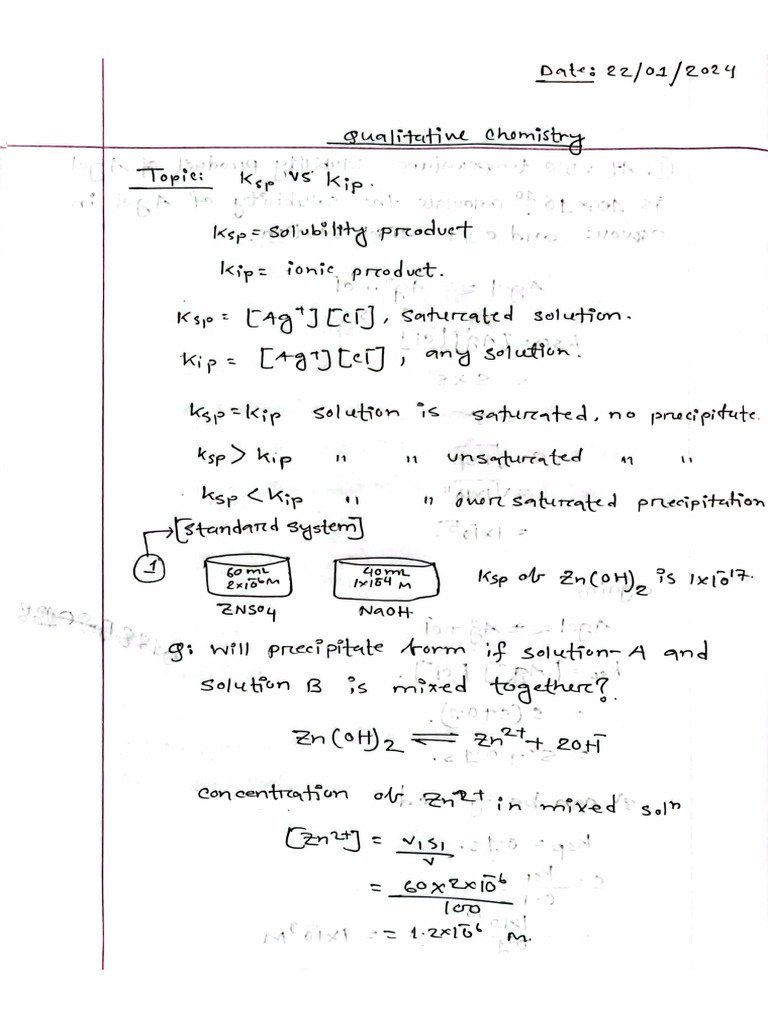 Date: 22/01/2024
Qualitative Chemistry
Topic: Ksp vs Kip.
Ksp = solubility product
Kip = ionic product.
Ksp = [Ag⁺][Cl⁻], saturated solution.
Kip = [Ag⁺][Cl⁻], any solution.
Ksp = Kip solution is saturated, no precipitate.
Ksp > Kip " " unsaturated " "
Ksp < Kip " " over saturated precipitation
[Standard System]
1
60mL 40mL
2×10⁻⁶M 1×10⁻⁴ M Ksp of Zn(OH)₂ is 1×10⁻¹⁷.
ZNSO₄ NaOH
Q: Will precipitate form if solution-A and
solution B is mixed together?
Zn(OH)₂ ⇌ Zn²⁺ + 2OH⁻
concentration of Zn²⁺ in mixed solⁿ
[Zn²⁺] = V₁S₁/V
= 60×2×10⁻⁶/100
= 1.2×10⁻⁶ M.